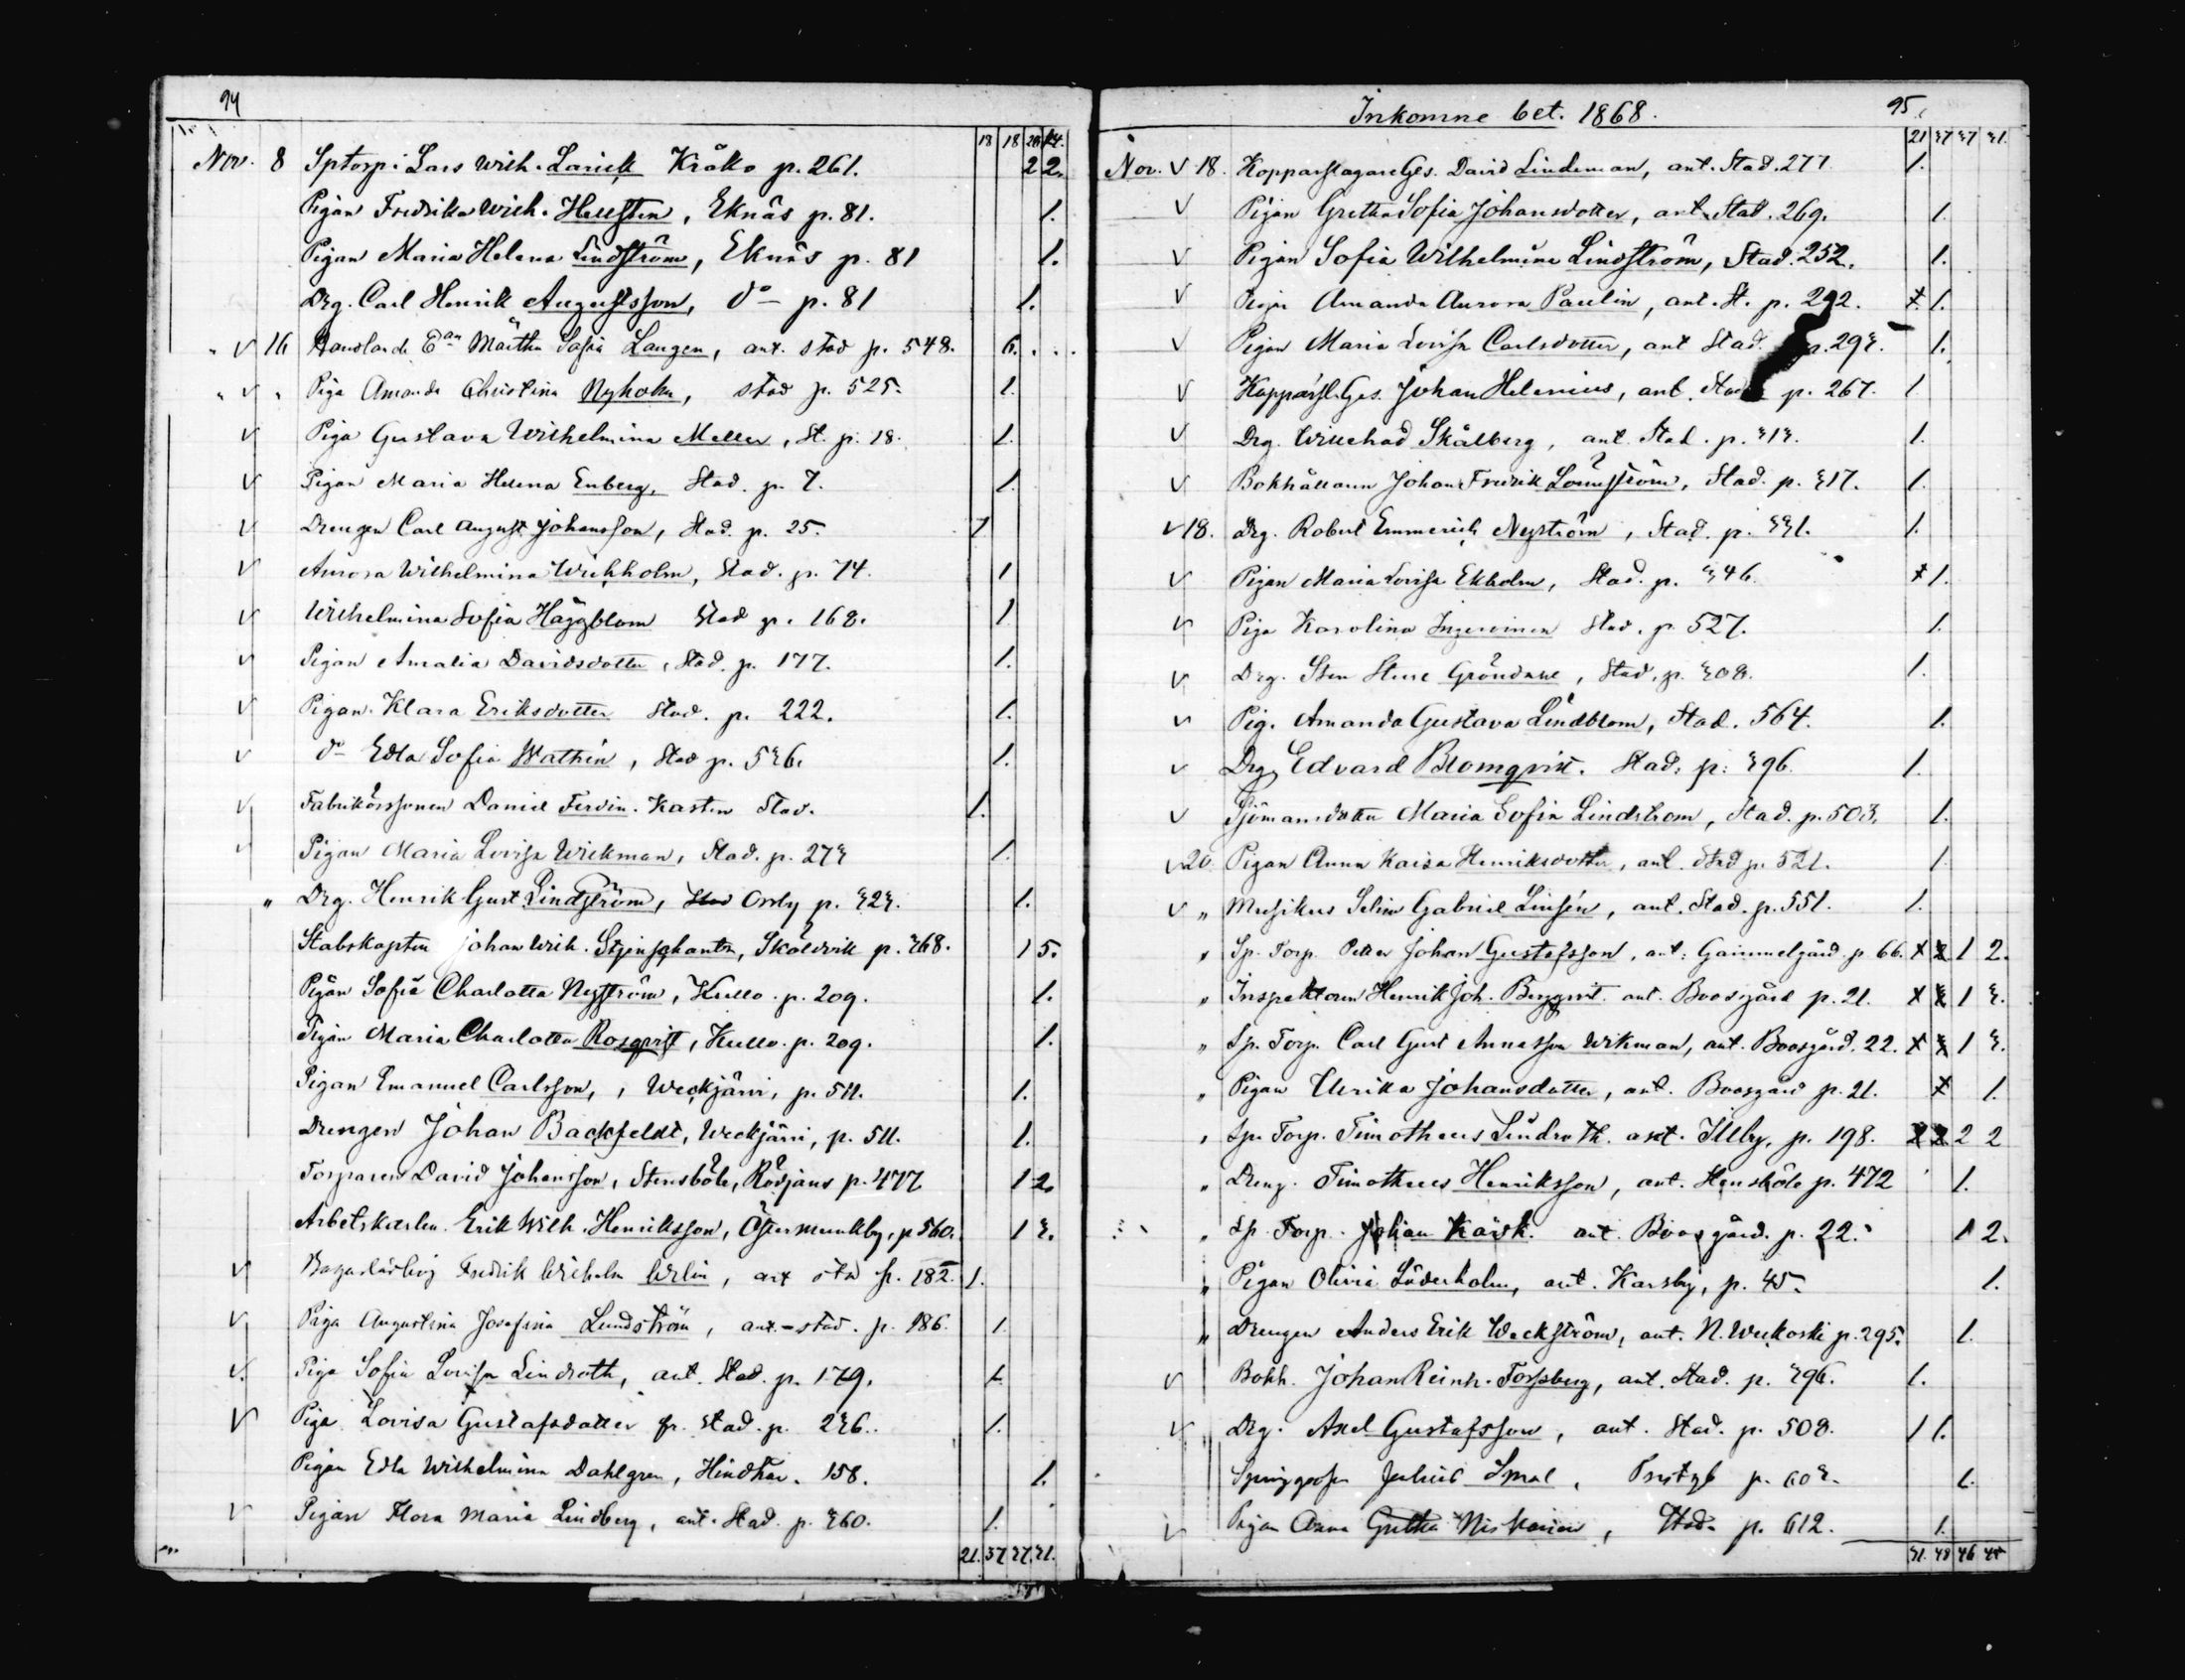 94
18 18 20 14.
Nov. 8 Sptorp: Lars Wilh. Larick Kråkö p. 261. 2 2.
Pigan Fredrika Wilh. Hellsten, Eknäs p. 81. 1.
Pigan Maria Helena Lindström, Eknäs p. 81 1.
Drg. Carl Henrik Augustsson, do p. 81 1.
" V 16 Märtha Sofia Langen, ant. stad p. 548. 6.
" V " Piga Amanda Christina Nyholm, stad p. 525. 1.
V Piga Gustava Wilhelmina Meller, St. p. 18. 1.
V Pigan Maria Helena Enberg, Stad. p. 7. 1.
V Drengen Carl August Johansson, Stad. p. 25. 1
V Aurora Wilhelmina Wickholm, Stad. p. 74. 1
V Wilhelmina Sofia Häggblom Stad p. 168. 1
V Pigan Amalia Davidsdotter, Stad. p. 177. 1.
V Pigan Klara Eriksdotter Stad. p. 222. 1.
V do Edla Sofia Wathén, Stad p. 536. 1.
V Daniel Ferdin. Karsten Stad. 1.
V Pigan Maria Lovisa Wickman, Stad. p. 273 1.
" Drg. Henrik Gust Lindström, Orrby p. 323. 1.
Stabskapten Johan Wilh. Stjernschantz, Sköldvik p. 368. 1 5.
Pigan Sofia Charlotta Nyström, Kullo. p. 209. 1.
Pigan Maria Charlotta Rosqvist, Kullo. p. 209. 1.
Pigan Emanuel Carlsson, Weckjärvi, p. 511. 1.
Drengen Johan Backfeldt, Weckjärvi, p. 511. 1.
Torparen David Johansson, Stensböle, Rödjans p. 477 1 2.
Arbetskarlen Erik Wilh. Henriksson, Östermunkby, p 560. 1 3.
V Fredrik Wilhelm Welin, ant stad p. 182. 1.
V Piga Augustina Josefina Lundström, ant. stad. p. 186. 1.
V. Piga Sofia Lovisa Lindroth, ant. Stad. p. 179. 1.
V Piga Lovisa Gustafsdotter fr. Stad. p. 236. 1.
Pigan Edla Wilhelmina Dahlgren, Hindhår. 158. 1.
V Pigan Flora Maria Lindberg, ant. Stad. p. 360. 1.
21. 37. 27. 31.
Inkomne bet. 1868. 95.
21 37 27 31.
Nov. V 18. Kopparslagare Ges. David Lindeman, ant. Stad. 277. 1.
V Pigan Gretha Sofia Johansdotter, ant. Stad. 269. 1.
V Pigan Sofia Wilhelmina Lindström, Stad. 252. 1.
V Pigan Amanda Aurora Paulin, ant. St. p. 292. 1.
V Pigan Maria Lovisa Carlsdotter, ant Stad. p. 293. 1.
V Kopparsl. Ges. Johan Helenius, ant. Stad p. 267. 1
V Drg. Willehad Skålberg, ant. Stad. p. 313. 1.
V Bokhållaren Johan Fredrik Lönnström, Stad. p. 317. 1.
V 18. Drg. Robert Emmerich Nyström, Stad. p. 331. 1.
V Pigan Maria Lovisa Ekholm, Stad. p. 346. 1.
V Piga Karolina Ingeroinen Stad. p. 527. 1.
V Drg. Sten Sture Gröndahl, Stad. p. 308. 1.
V Pig. Amanda Gustava Lindblom, Stad. 564. 1.
V Drg. Edvard Blomqvist. Stad. p: 396. 1.
V Sjömansdotter Maria Sofia Lindström, Stad. p. 503. 1.
V 20. Pigan Anna Kaisa Henriksdotter, ant. Stad p. 521. 1
V " Musikus Selim Gabriel Linsén, ant. Stad. p. 551. 1.
" Sp. Torp. Petter Johan Gustafsson, ant. Gammelgård p 66. 1 2.
" Inspektoren Henrik Joh. Bergqvist. ant. Boosgård p. 21. 1 3.
" Sp. Torp. Carl Gust Annasson Wikman, ant. Boosgård. 22. 1 3.
" Pigan Ulrika Johansdotter, ant. Boosgård p. 21. 1.
" Sp. Torp. Timotheus Lindroth. ant. Illby. p. 198. 2 2
" Dreng. Timotheus Henriksson, ant. Stensböle p. 472 1.
" Sp. Torp. Johan Kaisk. ant. Boosgård. p. 22. 1 2.
" Pigan Olivia Söderholm, ant. Karsby, p. 45. 1.
" Drengen Anders Erik Weckström, ant. N. Weckoski p. 295. 1.
V Bokh. Johan Reinh. Forssberg, ant. Stad. p. 396. 1.
V Drg. Axel Gustafsson, ant. Stad. p. 508. 1 1.
Julius p. 603. 1.
V Pigan Anna Gretha Niskanen, Stad. p. 612. 1.
31. 48 46 45